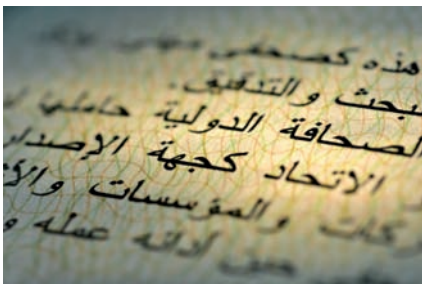 هذه كصحفي
للبحث والتدقيق.
الصحافة الدولية حاملها
الاتحاد كجهة الإصدار
والمؤسسات
حين ادائه عمله و